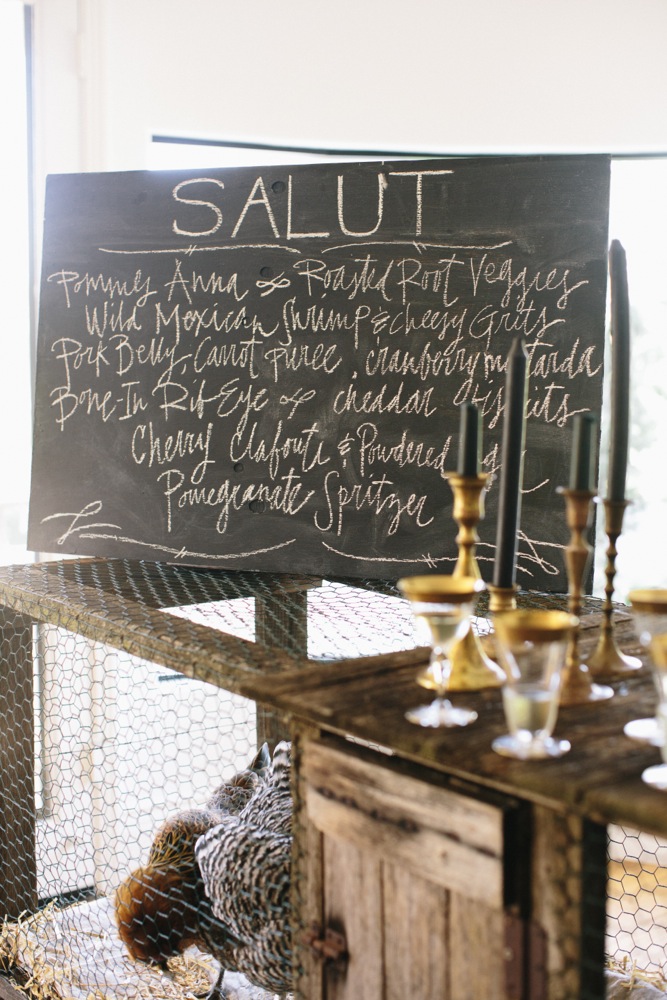 SALUT
Pommes Anna & Roasted Root Veggies
Wild Mexican Shrimp & Cheesy Grits
Pork Belly, Carrot puree, cranberry mustarda
Bone-In Rib Eye & cheddar biscuits
Cherry Clafouti & Powdered
Pomegranate Spritzer